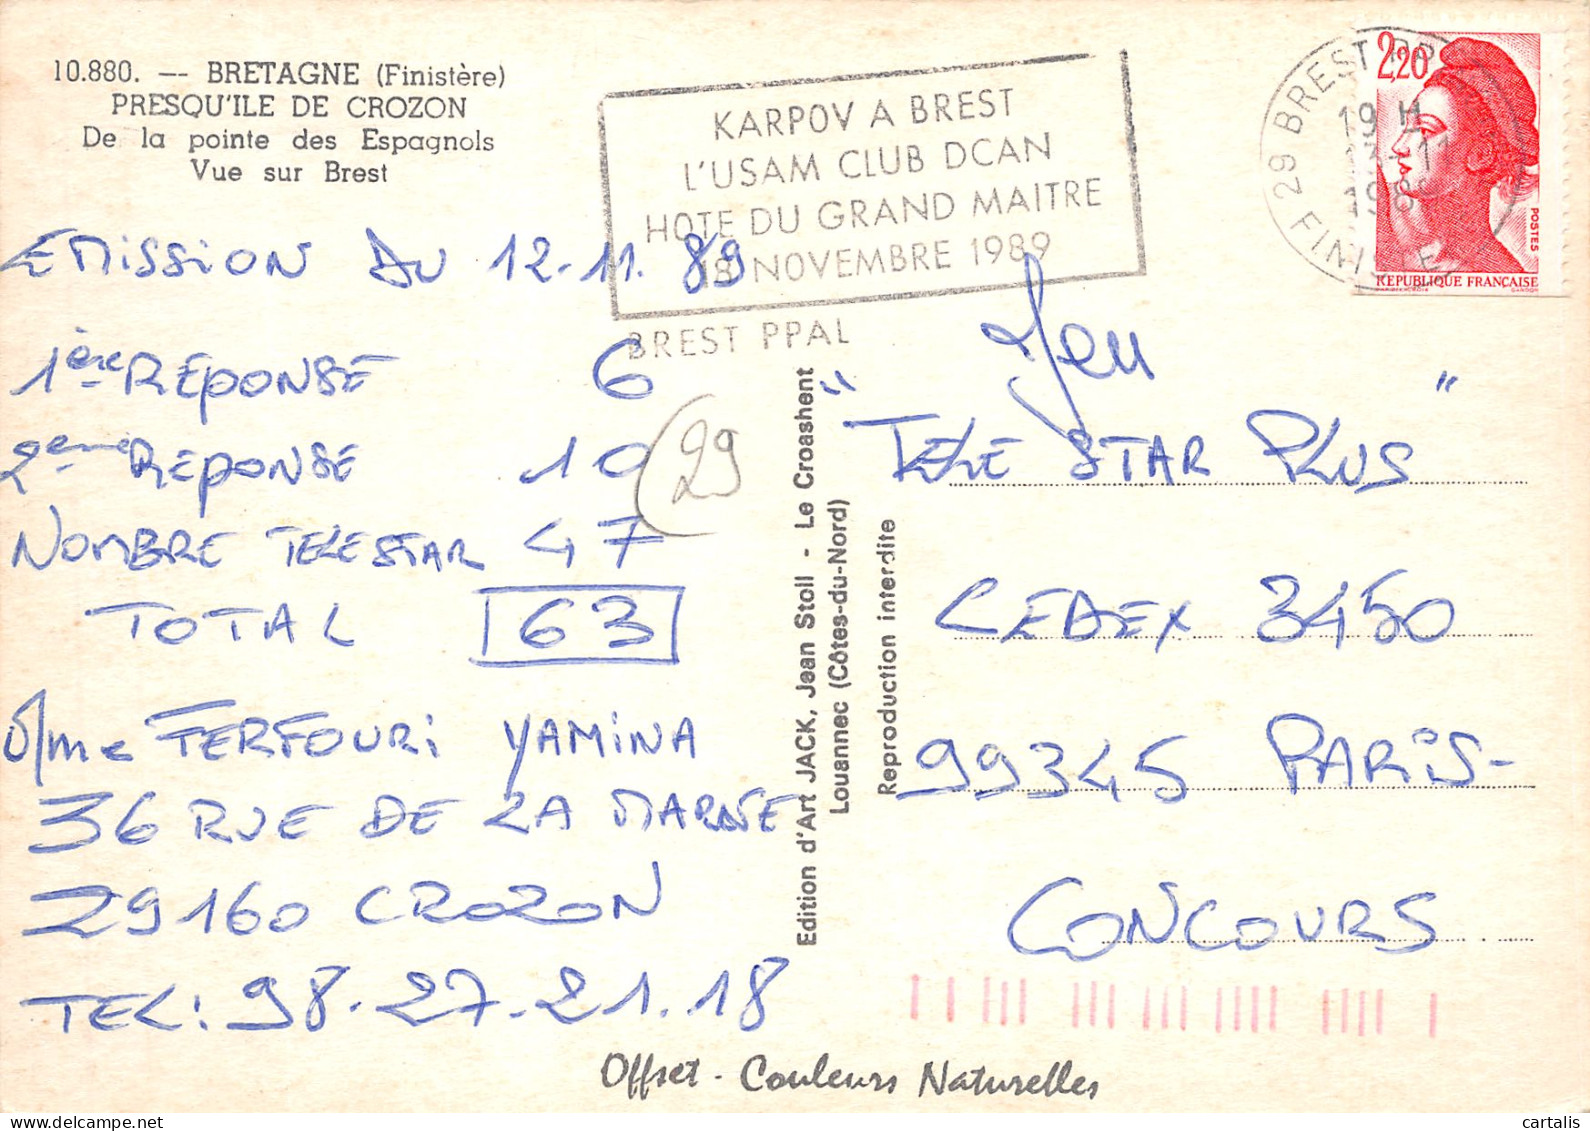 10.880. — BRETAGNE (Finistère)
PRESQU'ILE DE CROZON
De la pointe des Espagnols
Vue sur Brest
KARPOV A BREST
L'USAM CLUB DCAN
HOTE DU GRAND MAITRE
18 NOVEMBRE 1989
BREST PPAL
29 BREST
19 H
13-11
FINISTE
2,20
POSTES
REPUBLIQUE FRANCAISE
GANDON
EMISSION DU 12-11. 89
1ère REPONSE 6
2ème REPONSE 10
29
NOMBRE TELESTAR 47
TOTAL 63
Mme FERFOURI YAMINA
36 RUE DE LA MARNE
29160 CROZON
TEL: 98-27-21.18
Edition d'Art JACK, Jean Stoll - Le Croashent
Louannec (Côtes-du-Nord)
Reproduction interdite
"Jeu "
TELE STAR PLUS
CEDEX 3450
99345 PARIS-
CONCOURS
Offset - Couleurs Naturelles
cartalis